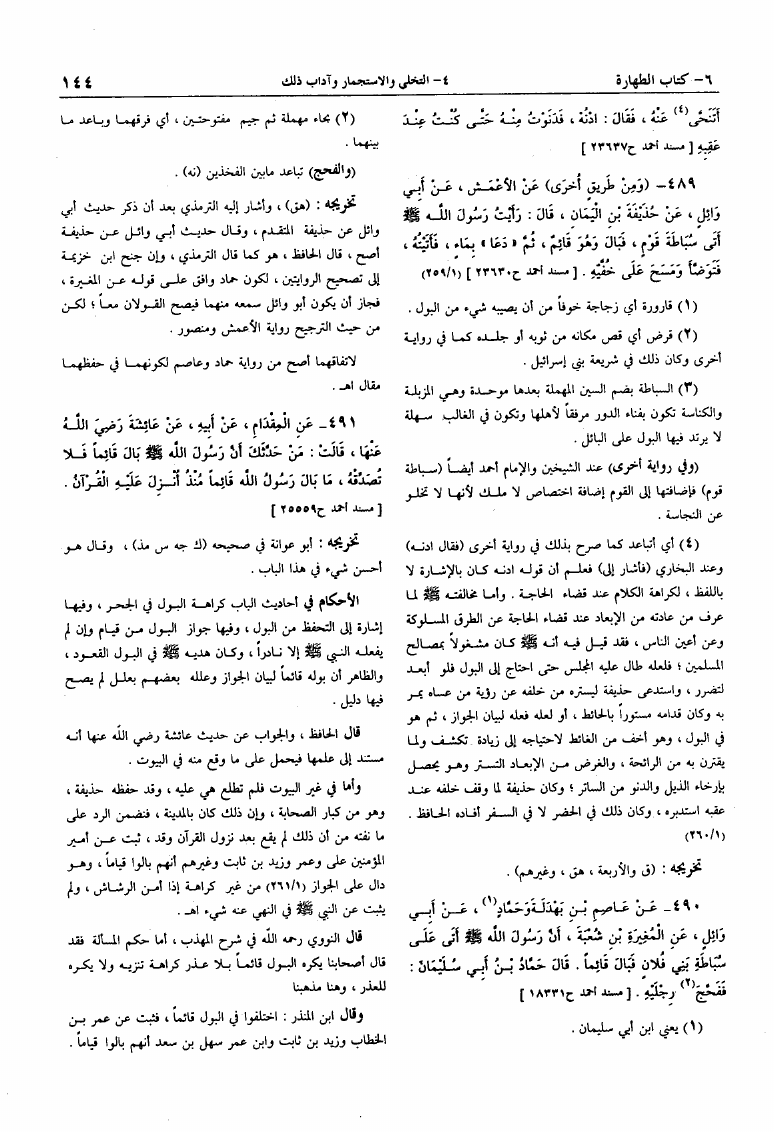 ٦- كتاب الطهارة
٤- التخلي والاستجمار وآداب ذلك
١٤٤
أَتَنَحَّى(٤) عَنْهُ ، فَقَالَ : ادْنُهْ ، فَدَنَوْتُ مِنْهُ حَتَّى كُنْتُ عِنْدَ
عَقِبِهِ [ مسند احمد ح٢٣٦٣٧ ]
٤٨٩- (وَمِنْ طَرِيقٍ أُخْرَى) عَنْ الأَعْمَشِ ، عَنْ أَبِي
وَائِلٍ ، عَنْ حُذَيْفَةَ بْنِ الْيَمَانِ ، قَالَ : رَأَيْتُ رَسُولَ اللهِ ﷺ
أَتَى سُبَاطَةَ قَوْمٍ ، فَبَالَ وَهُوَ قَائِمٌ ، ثُمَّ « دَعَا » بِمَاءٍ ، فَأَتَيْتُهُ ،
فَتَوَضَّأَ وَمَسَحَ عَلَى خُفَّيْهِ . [ مسند احمد ح٢٣٦٣٠ ] (٢٥٩/١)
(١) قارورة أي زجاجة خوفاً من أن يصيبه شيء من البول .
(٢) قرض أي قص مكانه من ثوبه أو جلده كما في رواية
أخرى وكان ذلك في شريعة بني إسرائيل .
(٣) السباطة بضم السين المهملة بعدها موحدة وهي المزبلة
والكناسة تكون بفناء الدور مرفقاً لأهلها وتكون في الغالب سهلة
لا يرتد فيها البول على البائل .
(وفي رواية أخرى) عند الشيخين والإمام أحمد أيضاً (سباطة
قوم) فإضافتها إلى القوم إضافة اختصاص لا ملك لأنها لا تخلو
عن النجاسة .
(٤) أي أتباعد كما صرح بذلك في رواية أخرى (فقال ادنه)
وعند البخاري (فأشار إلى) فعلم أن قوله ادنه كان بالإشارة لا
باللفظ ، لكراهة الكلام عند قضاء الحاجة . وأما مخالفته ﷺ لما
عرف من عادته من الإبعاد عند قضاء الحاجة عن الطرق المسلوكة
وعن أعين الناس ، فقد قيل فيه أنه ﷺ كان مشغولاً بمصالح
المسلمين ؛ فلعله طال عليه المجلس حتى احتاج إلى البول فلو أبعد
لتضرر ، واستدعى حذيفة ليستره من خلفه عن رؤية من عساه يمر
به وكان قدامه مستوراً بالحائط ، أو لعله فعله لبيان الجواز ، ثم هو
في البول ، وهو أخف من الغائط لاحتياجه إلى زيادة تكشف ولما
يقترن به من الرائحة ، والغرض من الإبعاد التستر وهو يحصل
بإرخاء الذيل والدنو من الساتر ؛ وكان حذيفة لما وقف خلفه عند
عقبه استدبره ، وكان ذلك في الحضر لا في السفر أفاده الحافظ .
(٢٦٠/١)
تخريجه : (ق والأربعة ، هق ، وغيرهم) .
٤٩٠- عَنْ عَاصِمِ بْنِ بَهْدَلَةَ وَحَمَّادٍ(١) ، عَنْ أَبِي
وَائِلٍ ، عَنِ الْمُغِيرَةِ بْنِ شُعْبَةَ ، أَنَّ رَسُولَ اللهِ ﷺ أَتَى عَلَى
سُبَاطَةِ بَنِي فُلانٍ فَبَالَ قَائِماً . قَالَ حَمَّادُ بْنُ أَبِي سُلَيْمَانَ :
فَفَحَّجَ(٢) رِجْلَيْهِ . [ مسند احمد ح١٨٣٣١ ]
(١) يعني ابن أبي سليمان .
(٢) بحاء مهملة ثم جيم مفتوحتين ، أي فرقهما وباعد ما
بينهما .
(والفحج) تباعد مابين الفخذين (نه) .
تخريجه : (هق) ، وأشار إليه الترمذي بعد أن ذكر حديث أبي
وائل عن حذيفة المتقدم ، وقال حديث أبي وائل عن حذيفة
أصح ، قال الحافظ ، هو كما قال الترمذي ، وإن جنح ابن خزيمة
إلى تصحيح الروايتين ، لكون حماد وافق على قوله عن المغيرة ،
فجاز أن يكون أبو وائل سمعه منهما فيصح القولان معاً ؛ لكن
من حيث الترجيح رواية الأعمش ومنصور .
لاتفاقهما أصح من رواية حماد وعاصم لكونهما في حفظهما
مقال اهـ .
٤٩١- عَنِ الْمِقْدَامِ ، عَنْ أَبِيهِ ، عَنْ عَائِشَةَ رَضِيَ اللهُ
عَنْهَا ، قَالَتْ : مَنْ حَدَّثَكَ أَنَّ رَسُولَ اللهِ ﷺ بَالَ قَائِماً فَلا
تُصَدِّقْهُ ، مَا بَالَ رَسُولُ اللهِ قَائِماً مُنْذُ أُنْزِلَ عَلَيْهِ الْقُرْآنُ .
[ مسند احمد ح٢٥٥٥٩ ]
تخريجه : أبو عوانة في صحيحه (ك جه س مذ) ، وقال هو
أحسن شيء في هذا الباب .
الأحكام في أحاديث الباب كراهة البول في الجحر ، وفيها
إشارة إلى التحفظ من البول ، وفيها جواز البول من قيام وإن لم
يفعله النبي ﷺ إلا نادراً ، وكان هديه ﷺ في البول القعود ،
والظاهر أن بوله قائماً لبيان الجواز وعلله بعضهم بعلل لم يصح
فيها دليل .
قال الحافظ ، والجواب عن حديث عائشة رضي الله عنها أنه
مستند إلى علمها فيحمل على ما وقع منه في البيوت .
وأما في غير البيوت فلم تطلع هي عليه ، وقد حفظه حذيفة ،
وهو من كبار الصحابة ، وإن ذلك كان بالمدينة ، فتضمن الرد على
ما نفته من أن ذلك لم يقع بعد نزول القرآن وقد ، ثبت عن أمير
المؤمنين على وعمر وزيد بن ثابت وغيرهم أنهم بالوا قياماً ، وهو
دال على الجواز (٢٦١/١) من غير كراهة إذا أمن الرشاش ، ولم
يثبت عن النبي ﷺ في النهي عنه شيء اهـ .
قال النووي رحمه الله في شرح المهذب ، أما حكم المسألة فقد
قال أصحابنا يكره البول قائماً بلا عذر كراهة تنزيه ولا يكره
للعذر ، وهنا مذهبنا
وقال ابن المنذر : اختلفوا في البول قائماً ، فثبت عن عمر بن
الخطاب وزيد بن ثابت وابن عمر سهل بن سعد أنهم بالوا قياماً .